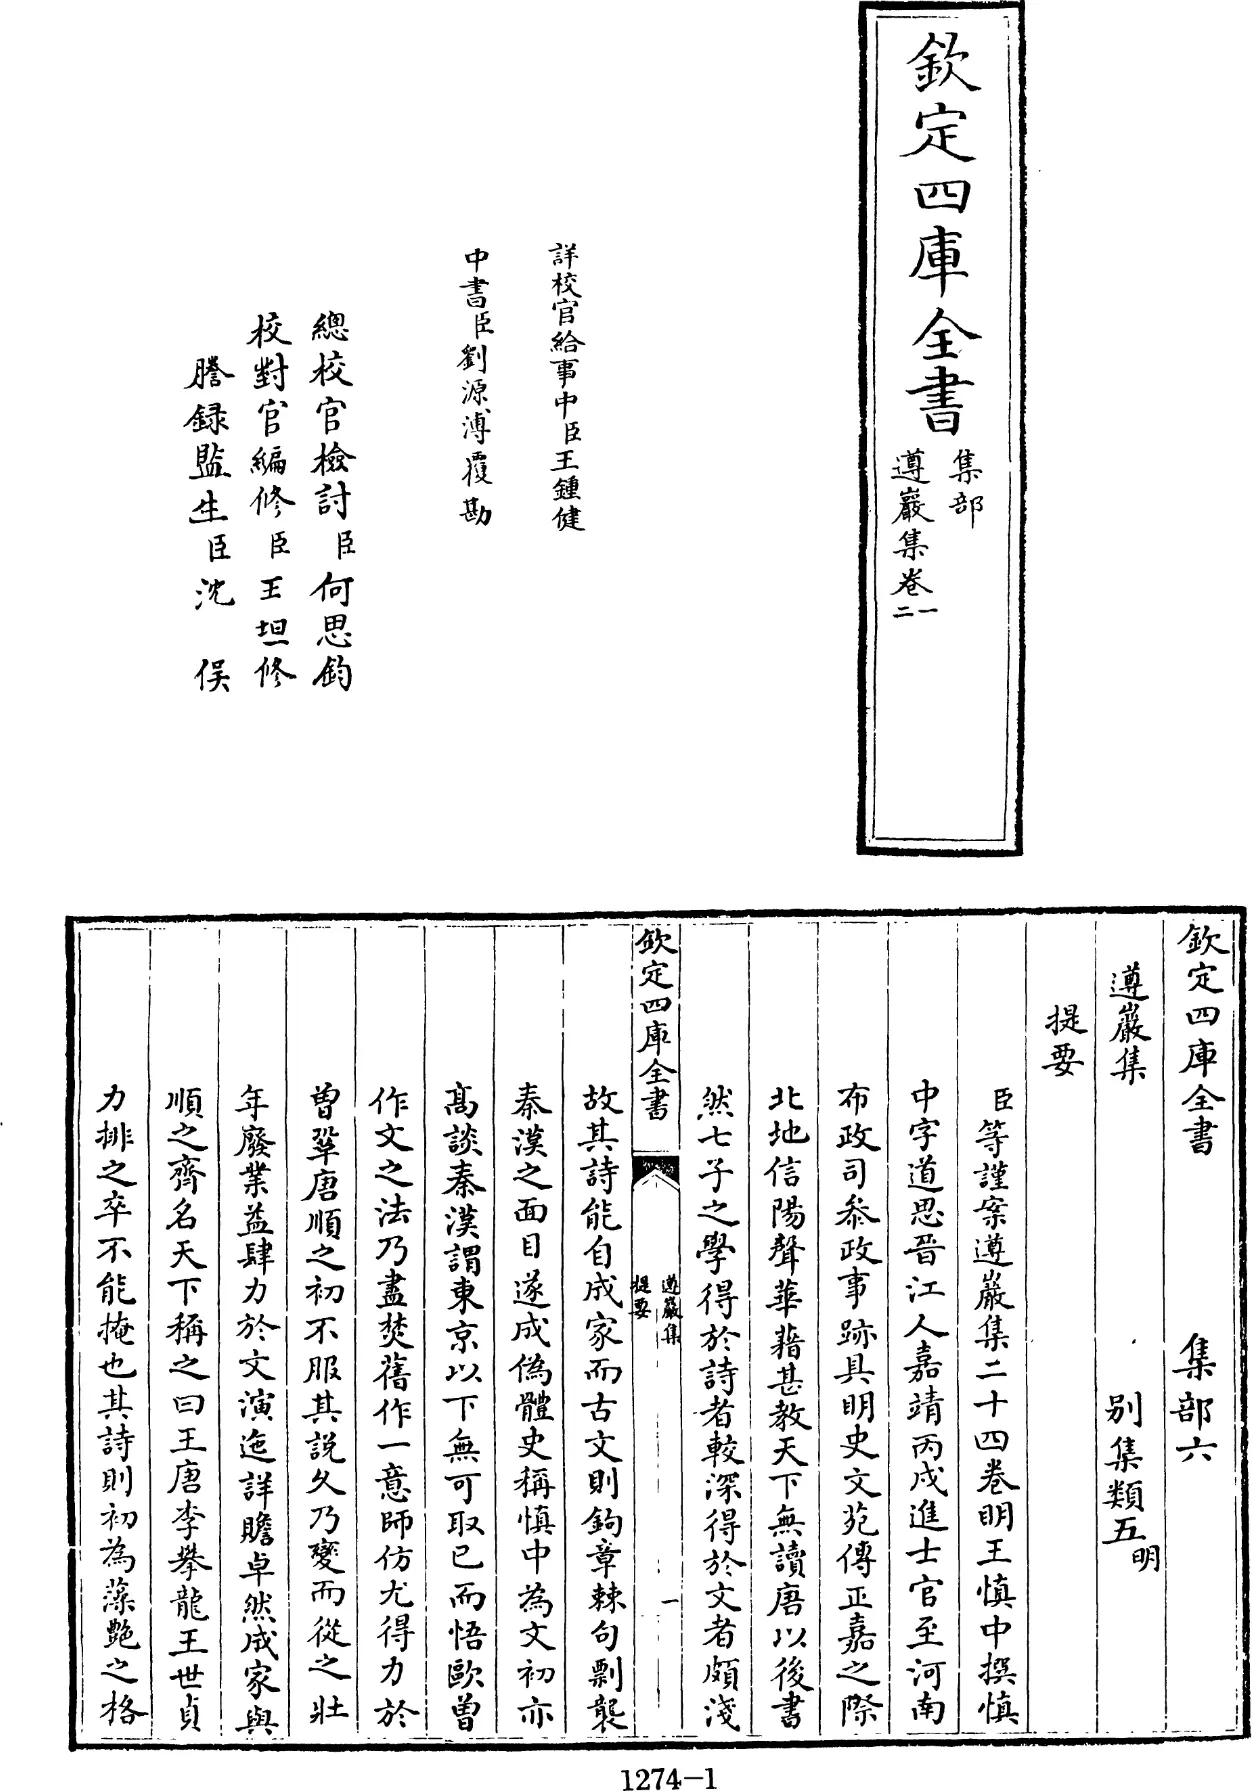 欽定四庫全書
集部
遵巖集卷一
二
詳校官給事中臣王鍾健
中書臣劉源溥覆勘
總校官檢討臣何思鈞
校對官編修臣王坦修
謄録監生臣沈俁
欽定四庫全書 集部六
遵巖集 别集類五明
提要
臣等謹案遵巖集二十四卷明王慎中撰慎
中字道思晉江人嘉靖丙戌進士官至河南
布政司叅政事跡具明史文苑傳正嘉之際
北地信陽聲華藉甚教天下無讀唐以後書
然七子之學得於詩者較深得於文者頗淺
欽定四庫全書 遵巖集
提要 一
故其詩能自成家而古文則鉤章棘句剽襲
秦漢之面目遂成偽體史稱慎中為文初亦
髙談秦漢謂東京以下無可取已而悟歐曾
作文之法乃盡焚舊作一意師仿尤得力於
曽鞏唐順之初不服其説久乃變而從之壯
年廢業益肆力於文演迤詳贍卓然成家與
順之齊名天下稱之曰王唐李攀龍王世貞
力排之卒不能掩也其詩則初為藻艶之格
1274-1